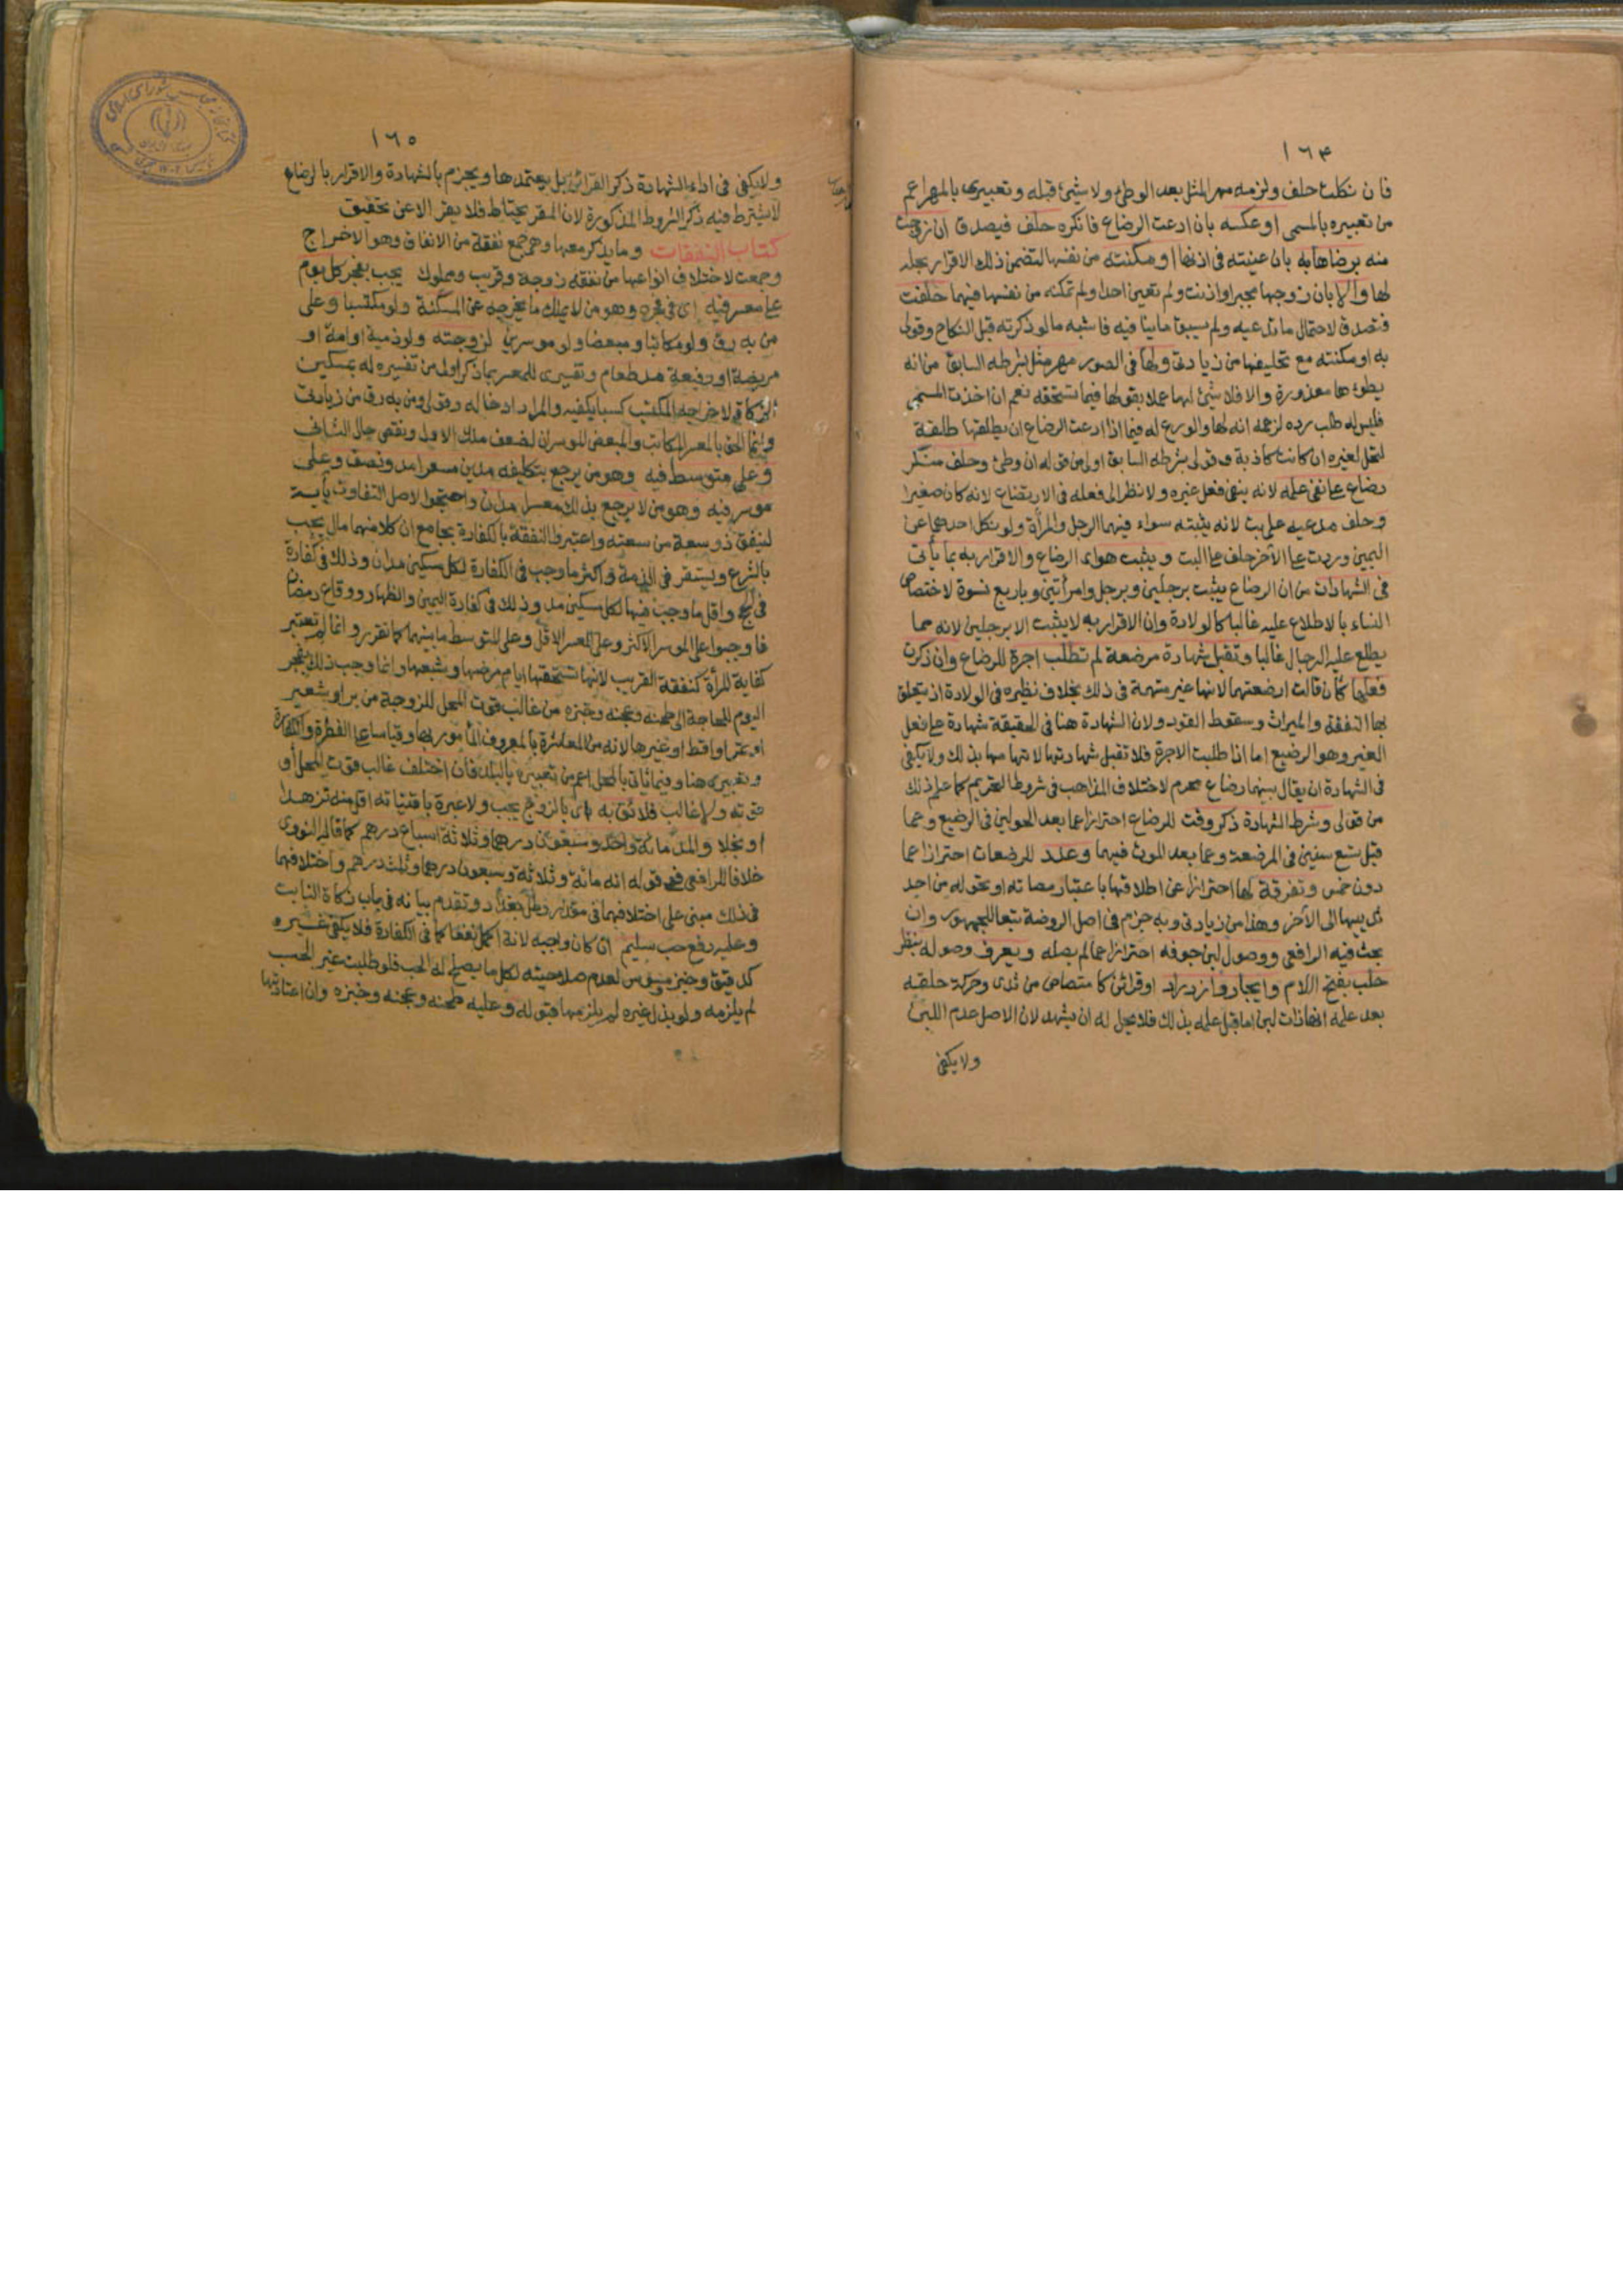 ١٦٤
فان نكلت حلف ولزمه مهر المثل بعد الوطئ ولا شيئ قبله وتعبيرى بالمهر اعم
من تعبيره بالمسمى او عكسه بان ادعت الرضاع فانكره حلف فيصدق ان زوجت
منه برضاها به بان عينته فى اذنها او مكنته من نفسها لتضمن ذلك الاقرار بحله
لها والا بان زوجها مجبر او اذنت ولم تعين احدا ولم تمكنه من نفسها فيهما حلفت
فتصدق لاحتمال ما تدعيه ولم يسبق ما ينافيه فاشبه ما لو ذكرته قبل النكاح وقولى
به او مكنته مع تحليفها من زيادتى ولها فى الصور مهر مثل بشرطه السابق من انه
يطوها معذورة والا فلا شيئ لها عملا بقولها فيما تستحقه نعم ان اخذت المسمى
فليس له طلب رده لزعمه انه لها والورع له فيما اذا ادعت الرضاع ان يطلقها طلقة
لتحل لغيره ان كانت كاذبة وقولى بشرطه السابق اولى من قوله ان وطئ وحلف منكر
رضاع على نفى علمه لانه ينفى فعل غيره ولا نظر الى فعله فى الارتضاع لانه كان صغيرا
وحلف مدعيه على بت لانه يثبته سواء فيهما الرجل والمرأة ولو نكل احدهما عن
اليمين وردت على الآخر حلف على البت ويثبت هو اى الرضاع والاقرار به بما يأتى
فى الشهادات من ان الرضاع يثبت برجلين وبرجل وامرأتين وباربع نسوة لاختصاص
النساء بالاطلاع عليه غالبا كالولادة وان الاقرار به لا يثبت الا برجلين لانه مما
يطلع عليه الرجال غالبا وتقبل شهادة مرضعة لم تطلب اجرة للرضاع وان ذكرت
فعلها كأن قالت ارضعتهما لانها غير متهمة فى ذلك بخلاف نظيره فى الولادة اذ يتعلق
بها النفقة والميراث وسقوط القود ولان الشهادة هنا فى الحقيقة شهادة على فعل
الغير وهو الرضيع اما اذا طلبت الاجرة فلا تقبل شهادتها لاتهامها بذلك ولا يكفى
فى الشهادة ان يقال بينهما رضاع محرم لاختلاف المذاهب فى شروط التحريم كما علم ذلك
من قولى وشرط الشهادة ذكر وقت للرضاع احترازا عما بعد الحولين فى الرضيع وعما
قبل تسع سنين فى المرضعة وعما بعد الموت فيهما وعدد للرضعات احترازا عما
دون خمس وتفرقة لها احترازا عن اطلاقها باعتبار مصاته او تحوله من احد
ثدييها الى الآخر وهذا من زيادتى وبه جزم فى اصل الروضة تبعا للجمهور وان
بحث فيه الرافعى ووصول لبن جوفه احترازا عما لم يصله ويعرف وصوله بنظر
حلب بفتح اللام وايجار وازدراد او قرائن كامتصاص من ثدى وحركة حلقه
بعد علمه انها ذات لبن اما قبل علمه بذلك فلا يحل له ان يشهد لان الاصل عدم اللبن
ولا يكفى
١٦٥
ولا يكفى فى اداء الشهادة ذكر القرائن بل يعتمدها ويجزم بالشهادة والاقرار بالرضاع
لا يشترط فيه ذكر الشروط المذكورة لان المقر يحتاط فلا يقر الا عن تحقيق
كتاب النفقات وما يذكر معها وهى جمع نفقة من الانفاق وهو الاخراج
وجمعت لاختلاف انواعها من نفقة زوجة وقريب ومملوك يجب بفجر كل يوم
على معسر فيه اى فى فجره وهو من لا يملك ما يخرجه عن المسكنة ولو مكتسبا وعلى
من به رق ولو مكاتبا ومبعضا ولو موسرين لزوجته ولو ذمية او امة او
مريضة او رفيعة مد طعام وتفسيرى للمعسر بما ذكر اولى من تفسيره له بمسكين
الزكاة لاخراجه المكتسب كسبا يكفيه والمراد ادخاله وقولى ومن به رق من زيادتى
وانما الحق بالمعسر المكاتب والمبعض الموسران لضعف ملك الاول ونقص حال الثانى
وعلى متوسط فيه وهو من يرجع بتكليفه مدين معسرا مد ونصف وعلى
موسر فيه وهو من لا يرجع بذلك معسرا مدان واحتجوا لاصل التفاوت بآية
لينفق ذو سعة من سعته واعتبروا النفقة بالكفارة بجامع ان كلا منهما مال يجب
بالشرع ويستقر فى الذمة واكثر ما وجب فى الكفارة لكل مسكين مدان وذلك فى كفارة
فى الحج واقل ما وجب فيها لكل مسكين مد وذلك فى كفارة اليمين والظهار ووقاع رمضان
فاوجبوا على الموسر الاكثر وعلى المعسر الاقل وعلى المتوسط ما بينهما كما تقرر وانما لم تعتبر
كفاية المرأة كنفقة القريب لانها تستحقها ايام مرضها وشبعها وانما وجب ذلك بفجر
اليوم للحاجة الى طحنه وعجنه وخبزه من غالب قوت المحل للزوجة من بر او شعير
او تمر او اقط او غيرها لانه من المعاشرة بالمعروف المأمور بها وقياسا على الفطرة والكفارة
وتعبيرى هنا وفيما يأتى بالمحل اعم من تعبيره بالبلد فان اختلف غالب قوت المحل او
قوته ولا غالب فلائق به اى بالزوج يجب ولا عبرة باقتياته اقل منه تزهدا
او بخلا والمد مائة واحد وسبعون درهما وثلاثة اسباع درهم كما قاله النووى
خلافا للرافعى فى قوله انه مائة وثلاثة وسبعون درهما وثلث درهم واختلافهما
فى ذلك مبنى على اختلافهما فى مقدار رطل بغداد وتقدم بيانه فى باب زكاة النابت
وعليه دفع حب سليم ان كان واجبه لانه اكمل نفعا كما فى الكفارة فلا يكفى غيره
كدقيق وخبز ومسوس لعدم صلاحيته لكل ما يصلح له الحب فلو طلبت غير الحب
لم يلزمه ولو بذل غيره لم يلزمها قبوله وعليه طحنه وعجنه وخبزه وان اعتادتها